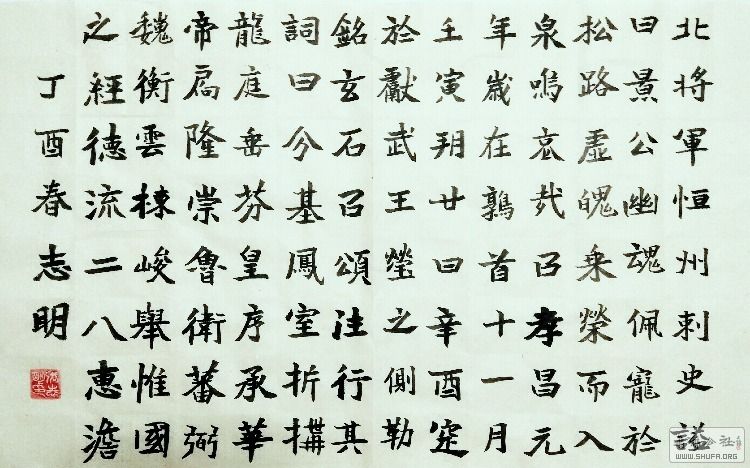 北將軍恒州刺史謚
曰景公幽魂佩寵於
松路虛魄乘榮而入
泉嗚哀哉㠯孝昌元
年歲在鶉首十一月
壬寅朔廿日辛酉窆
於獻武王瑩之側勒
銘玄石㠯頌注行其
詞曰兮基鳳室折搆
龍庭垂芬皇序承華
帝扆隆崇魯衛蕃弼
魏衡雲棟峻舉惟國
之經德流二八惠澹
丁酉春志明
WWW.SHUFA.ORG